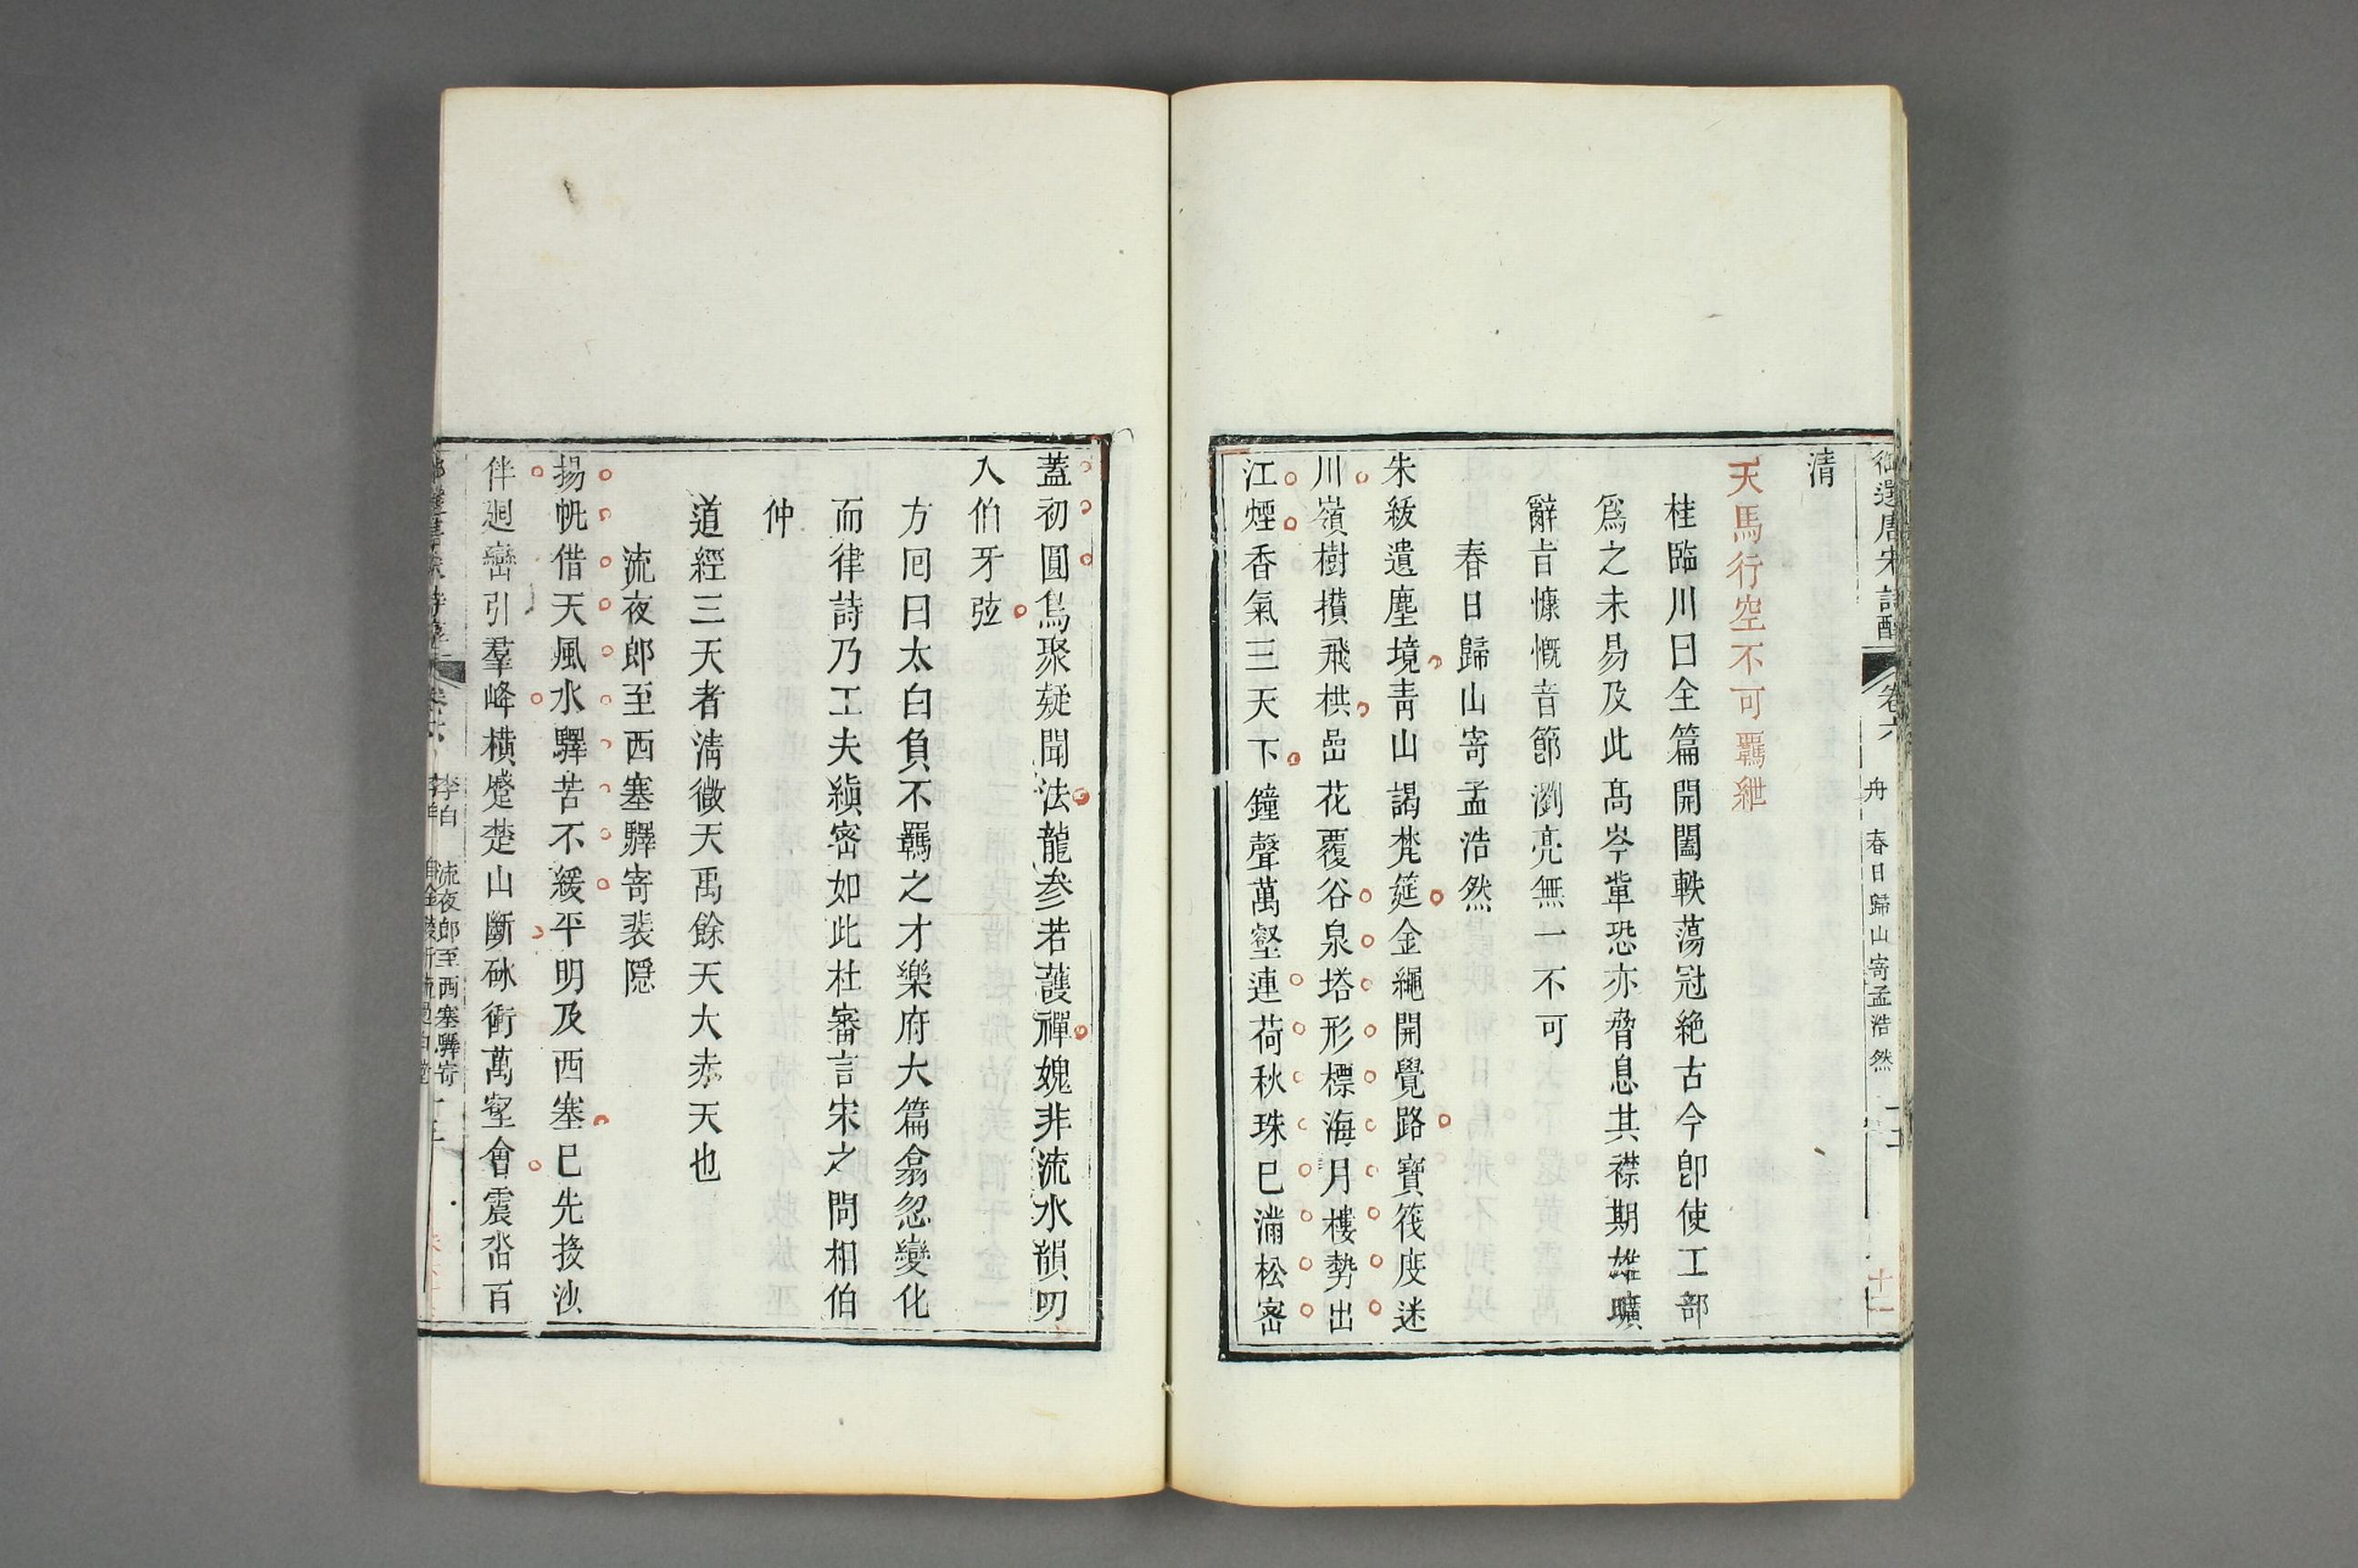 御選唐宋詩醇 卷六 舟 春日歸山寄孟浩然
十一
清
天馬行空不可羈紲
桂臨川曰全篇開闔軼蕩冠絶古今卽使工部
爲之未易及此髙岑輩恐亦脅息其襟期雄曠
辭旨慷慨音節瀏亮無一不可
春日歸山寄孟浩然
朱紱遺塵境青山謁梵筵金繩開覺路寶筏度迷
川嶺樹攅飛栱嵒花覆谷泉塔形標海月樓勢出
江煙香氣三天下鐘聲萬壑連荷秋珠已滿松宻
蓋初圓鳥聚疑聞法龍參若護禪媿非流水韻叨
入伯牙弦
方囘曰太白負不羈之才樂府大篇翕忽變化
而律詩乃工夫縝宻如此杜審言宋之問相伯
仲
道經三天者淸微天禹餘天大赤天也
流夜郎至西塞驛寄裴隱
揚帆借天風水驛苦不緩平明及西塞已先投沙
伴廻巒引羣峰橫蹙楚山斷砯衝萬壑會震沓百
李白 流夜郎至西塞驛寄